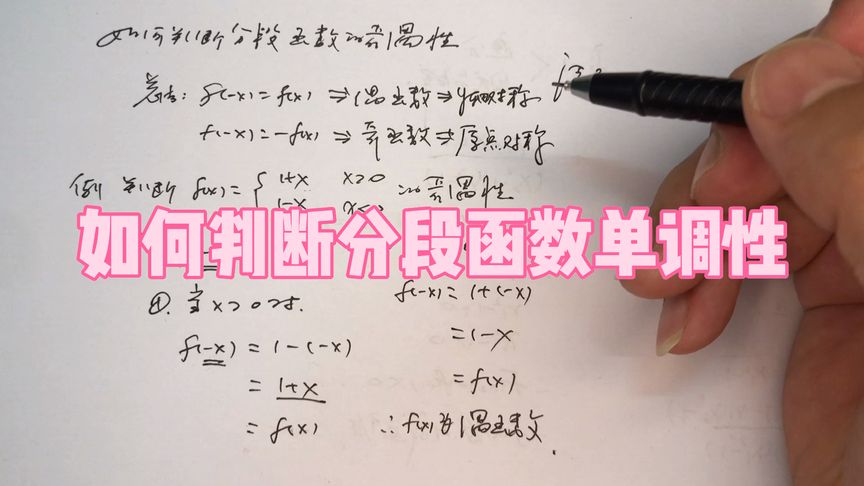 如何判断分段函数的奇偶性
总结: f(-x)=f(x) ⇒偶函数⇒y轴对称
f(-x)=-f(x) ⇒奇函数⇒原点对称
例 判断 f(x)={ 1+x x>0 的奇偶性
1-x x<0
如何判断分段函数单调性
①. 当x>0时.
f(-x)=1-(-x)
=1+x
=f(x)
f(-x)=1+(-x)
=1-x
=f(x)
∴f(x)为偶函数.